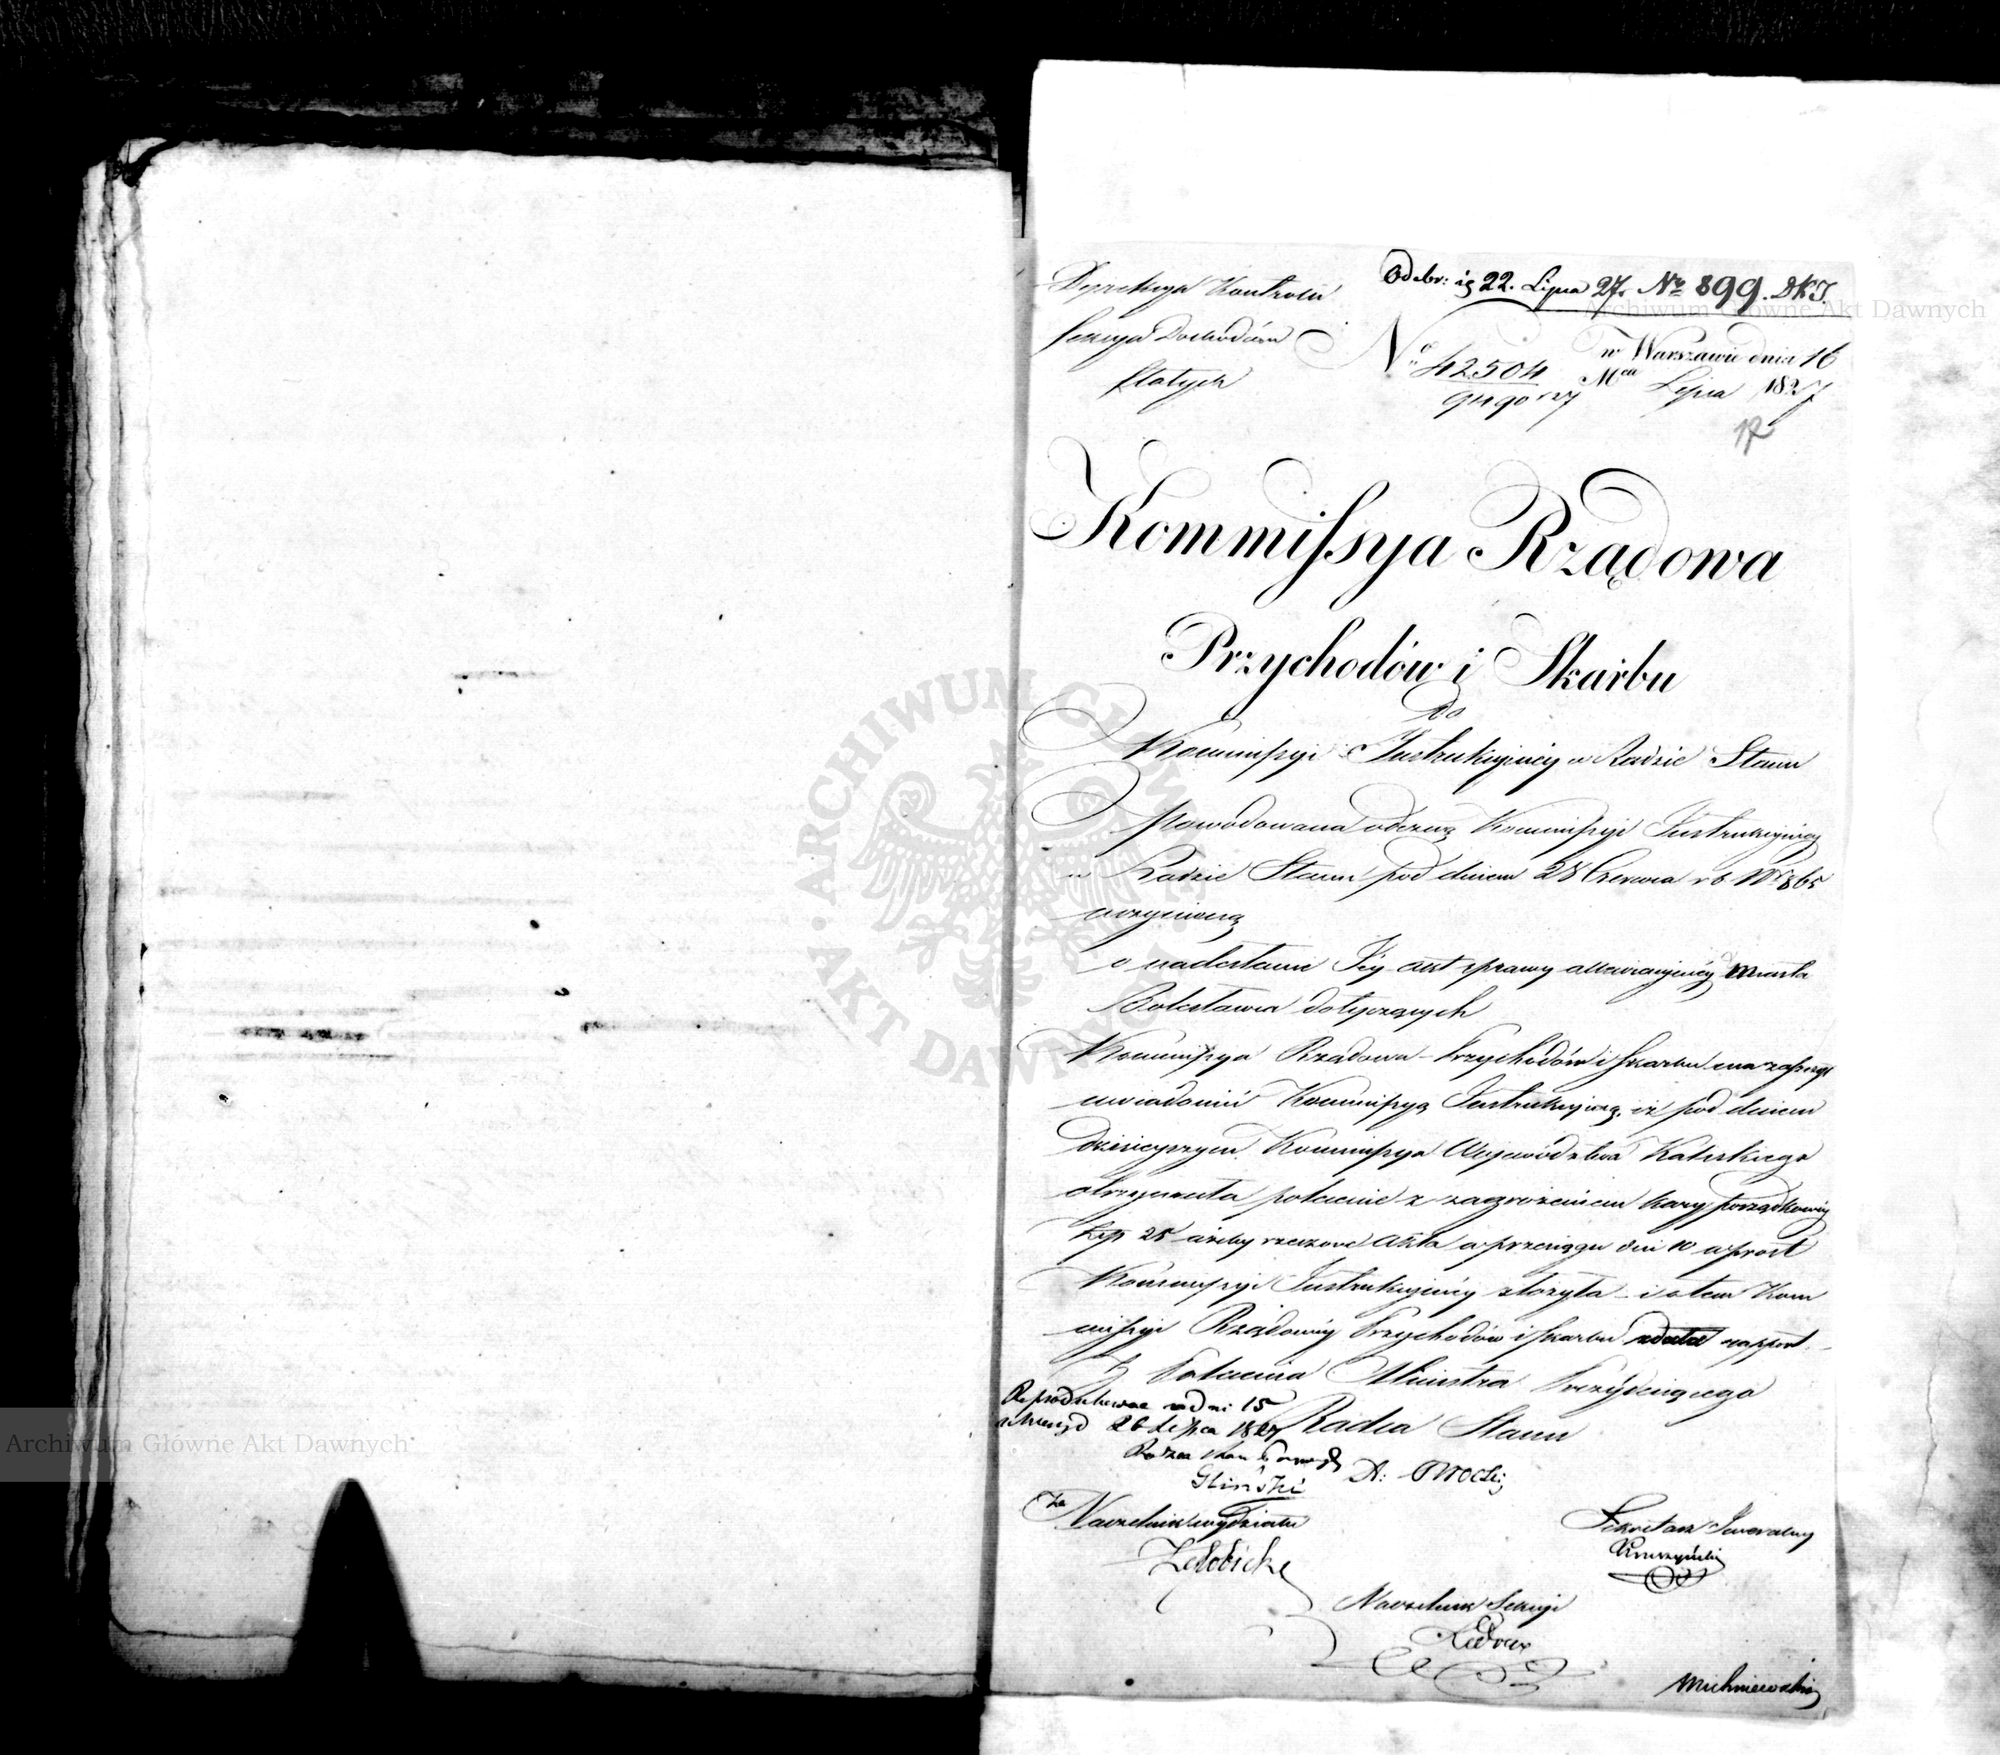 Dyrekcya Kontroli
Sekcya Dochodów
stałych
Odebr: ig 22. Lipca 27. No 899. DKJ.
No 42504
9490 27
w Warszawie dnia 16
Mca Lipca 1827
17
Kommissya Rządowa
Przychodów i Skarbu
do
Kommissyi Instrukcyinéy w Radzie Stanu
Spowodowana odezwą Kommissyi Instrukcyinéy
w Radzie Stanu pod dniem 28 Czerwca r b No 865
uczynioną
o nadesłanie Jéy akt sprawy miasta
Bolesławia dotyczących
Kommissya Rządowa Przychodów i Skarbu ma zaszczyt
uwiadomić Kommissyą Instrukcyiną, iż pod dniem
dzisieyszym Kommissya Województwa Kaliskiego
otrzymała polecenie z zagrożeniem kary porządkowéy
złp 25 ażeby rzeczone Akta w przeciągu dni 10 wprost
Kommissyi Instrukcyinéy złożyła i o tem Kom
missyi Rządowéy Przychodów i Skarbu zdała rapport.
Z Polecenia Ministra Prezyduiącego
Radca Stanu
Reprodukować za dni 15
26 Lipca 1827
Gliński
Za Naczelnika wydziału
Sekretarz Jeneralny
Kruszyński
Naczelnik Sekcyi
Michniewski
Archiwum Główne Akt Dawnych
Archiwum Główne Akt Dawnych
ARCHIWUM GŁÓWNE AKT DAWNYCH